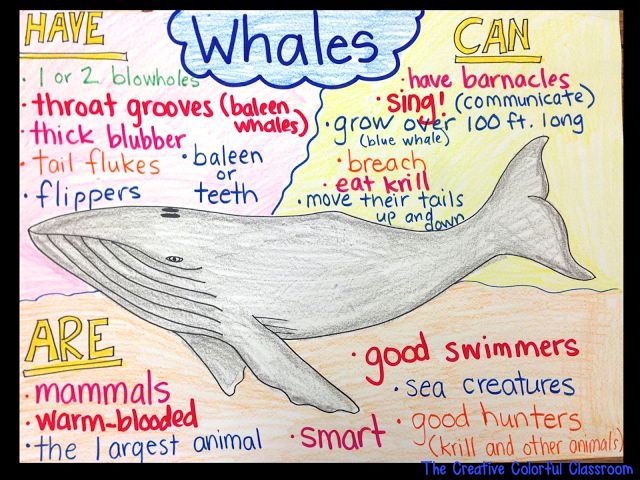 Whales
HAVE
• 1 or 2 blowholes
• throat grooves (baleen
whales)
• thick blubber
• tail flukes
• flippers
• baleen
or
teeth
CAN
• have barnacles
• sing! (communicate)
• grow over 100 ft. long
(blue whale)
• breach
• eat krill
• move their tails
up and
down
ARE
• mammals
• warm-blooded
• the largest animal
• smart
• good swimmers
• sea creatures
• good hunters
(krill and other animals)
The Creative Colorful Classroom